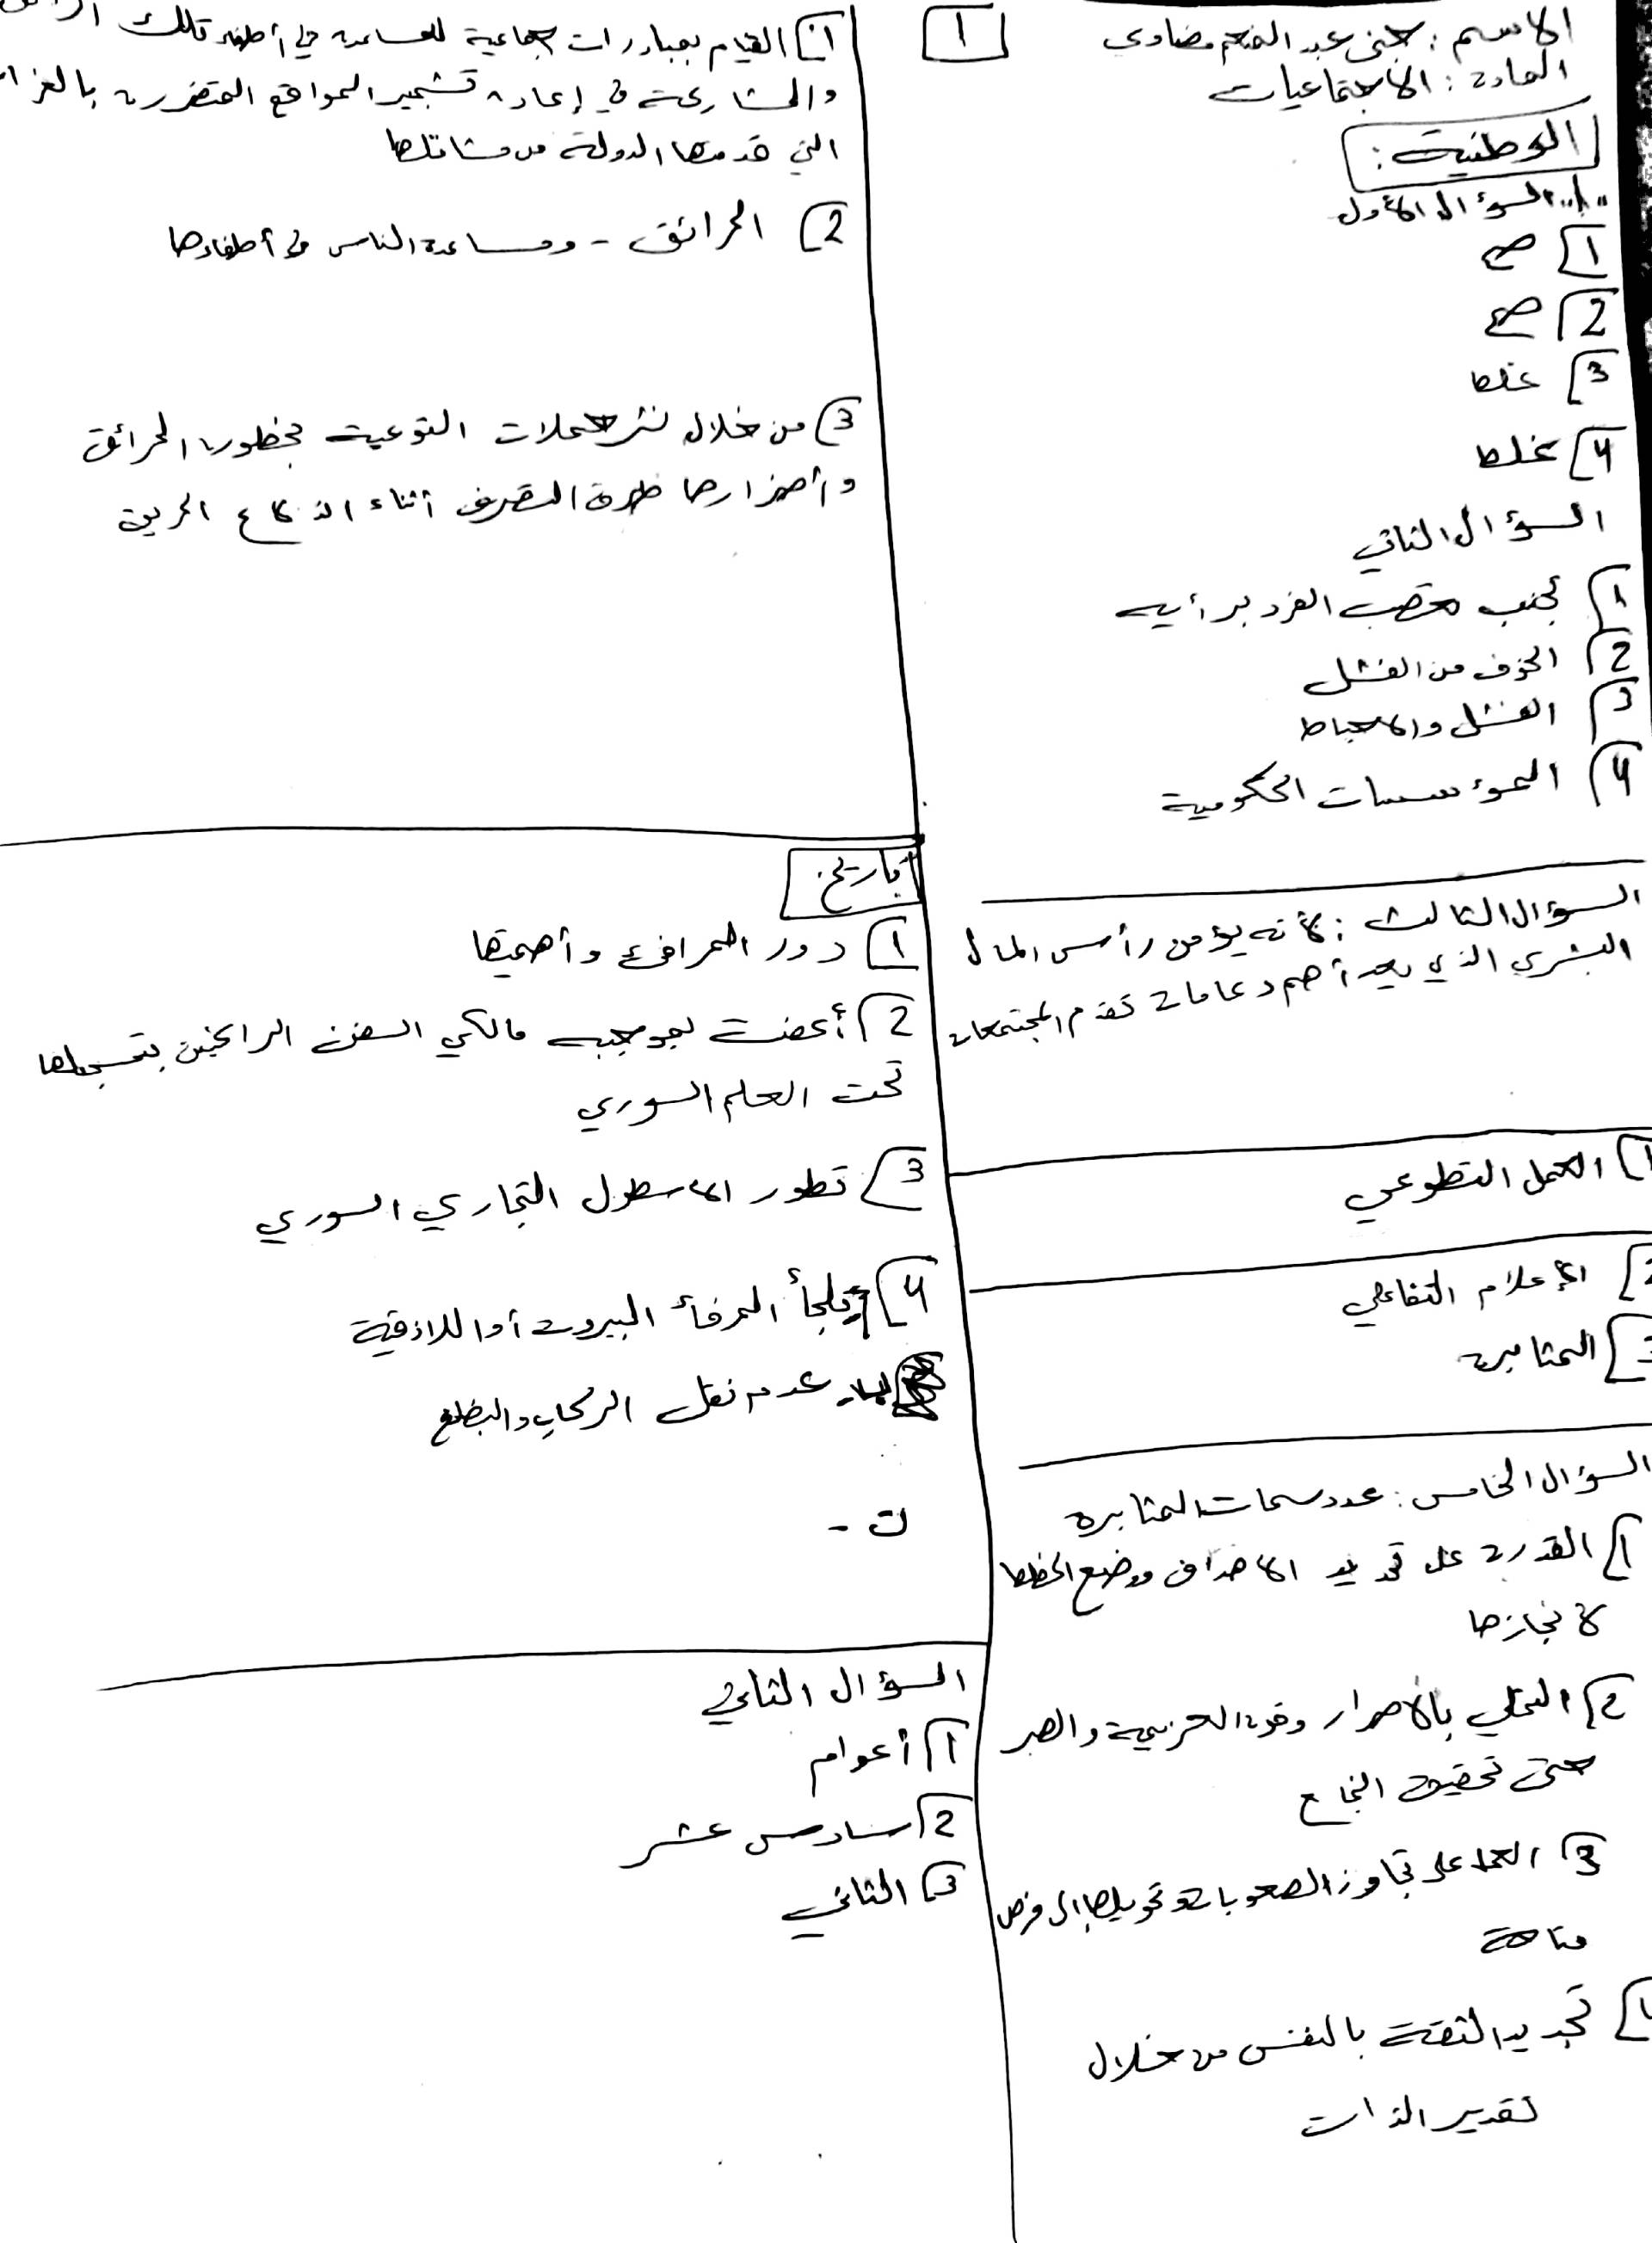 الاسم : جنى عبد المنعم مضاوي
1
المادة : الاجتماعيات
الوطنية :
"1" السؤال الأول
1 صح
2 صح
3 غلط
4 غلط
السؤال الثاني
1 تجنب تعصب الفرد برأيه
2 الخوف من الفشل
3 الفشل والاحباط
4 المؤسسات الحكومية
السؤال الثالث : لأنه يؤمن رأس المال
البشري الذي يعد أهم دعامات تقدم المجتمعات
1 العمل التطوعي
2 الإعلام التفاعلي
3 المثابرة
السؤال الخامس : عدد سمات المثابرة
1 القدرة على تحديد الاهداف ووضع الخطط
لانجازها
2 التحلي بالاصرار وقوة العزيمة والصبر
حتى تحقيق النجاح
3 العمل على تجاوز الصعوبات وتحويلها إلى فرص
متاحة
تجديد الثقة بالنفس من خلال
تقدير الذات
1 القيام بمبادرات جماعية للمساعدة في أطفاء تلك
والمشاركة في إعادة تشجير المواقع المتضررة
التي قدمتها الدولة من مشاتلها
2 الحرائق - ومساعدة الناس في أطفاءها
3 من خلال نشر حملات التوعية بخطورة الحرائق
وأضرارها طرق التصرف أثناء اندلاع الحريق
تاريخ
1 دور المرافئ وأهميتها
2 أعفت بموجبه مالكي السفن الراغبين بتسجيلها
تحت العلم السوري
3 تطور الاسطول التجاري السوري
4 تلجأ المرفأ البيروت أو اللاذقية
عدم نقل الركاب والبضائع
ت -
السؤال الثاني
1 أعوام
2 سادس عشر
3 الثاني